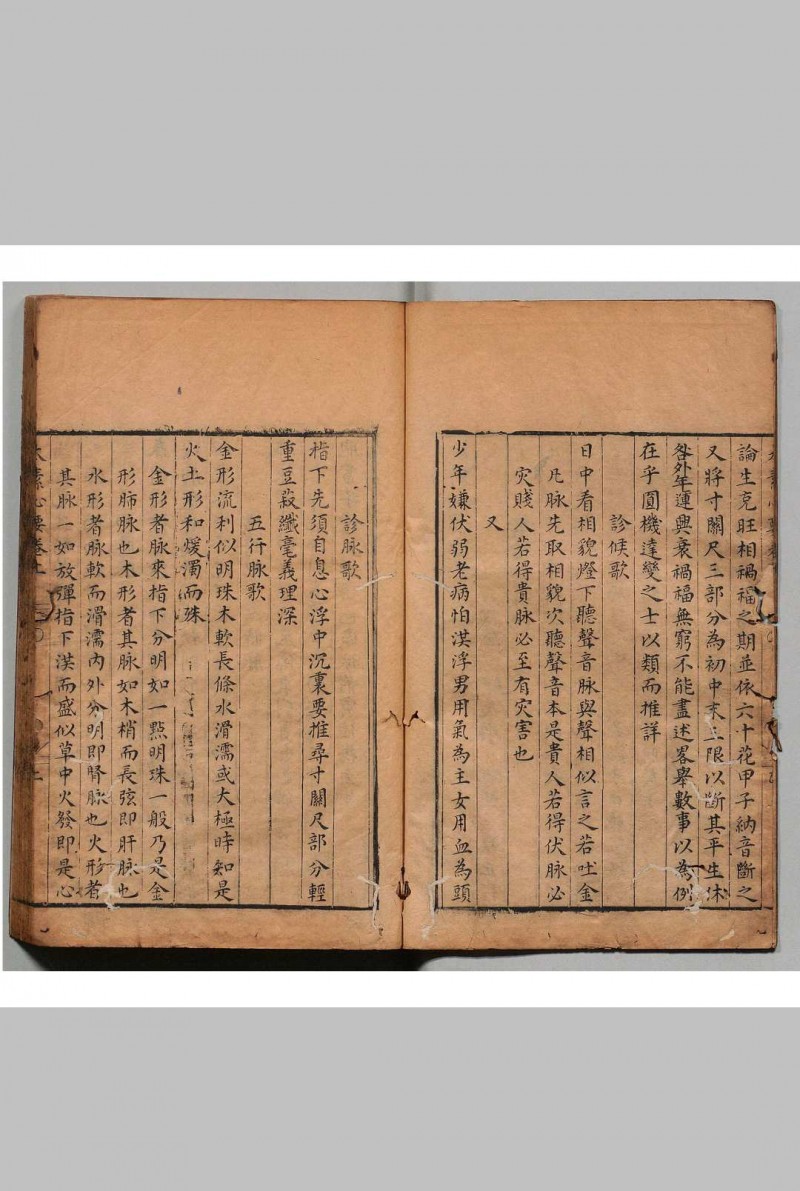 論生克旺相禍福之期並依六十花甲子納音斷之
又將寸關尺三部分為初中末三限以斷其平生休
咎外年運興衰禍福無窮不能盡述畧舉數事以為例
在乎圓機達變之士以類而推詳
診候歌
日中看相貌燈下聽聲音脉與聲相似言之若吐金
凡脉先取相貌次聽聲音本是貴人若得伏脉必
灾賤人若得貴脉必至有灾害也
又
少年嫌伏弱老病怕洪浮男用氣為主女用血為頭
診脉歌
指下先須自息心浮中沉裏要推尋寸關尺部分輕
重豆菽纖毫義理深
五行脉歌
金形流利似明珠木軟長條水滑濡或大極時知是
火土形和煖濁而殊
金形者脉來指下分明如一㸃明珠一般乃是金
形肺脉也木形者其脉如木梢而長弦即肝脉也
水形者脉軟而滑濡內外分明即腎脉也火形者
其脉一如放彈指下洪而盛似草中火發即是心
太素心要卷上